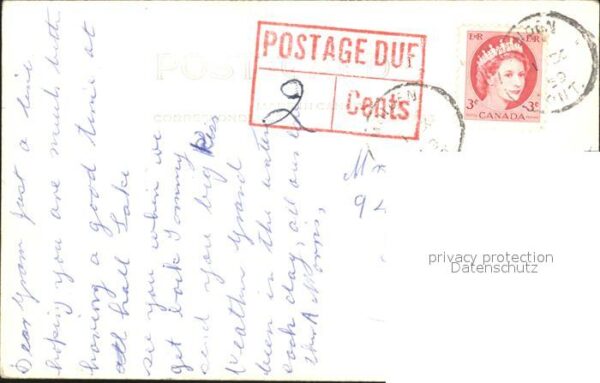 POSTAGE DUE
2
Cents
E R II R
3¢ 3¢
CANADA
POST
CORRESPOND
Dear Gram Just a line
hoping you are much better
having a good time at
Hall Lake
see you when we
get back Tommy
send you big kiss
Weather Grand
been in the water
each day, all our love
Morris,
M
92
privacy protection
Datenschutz